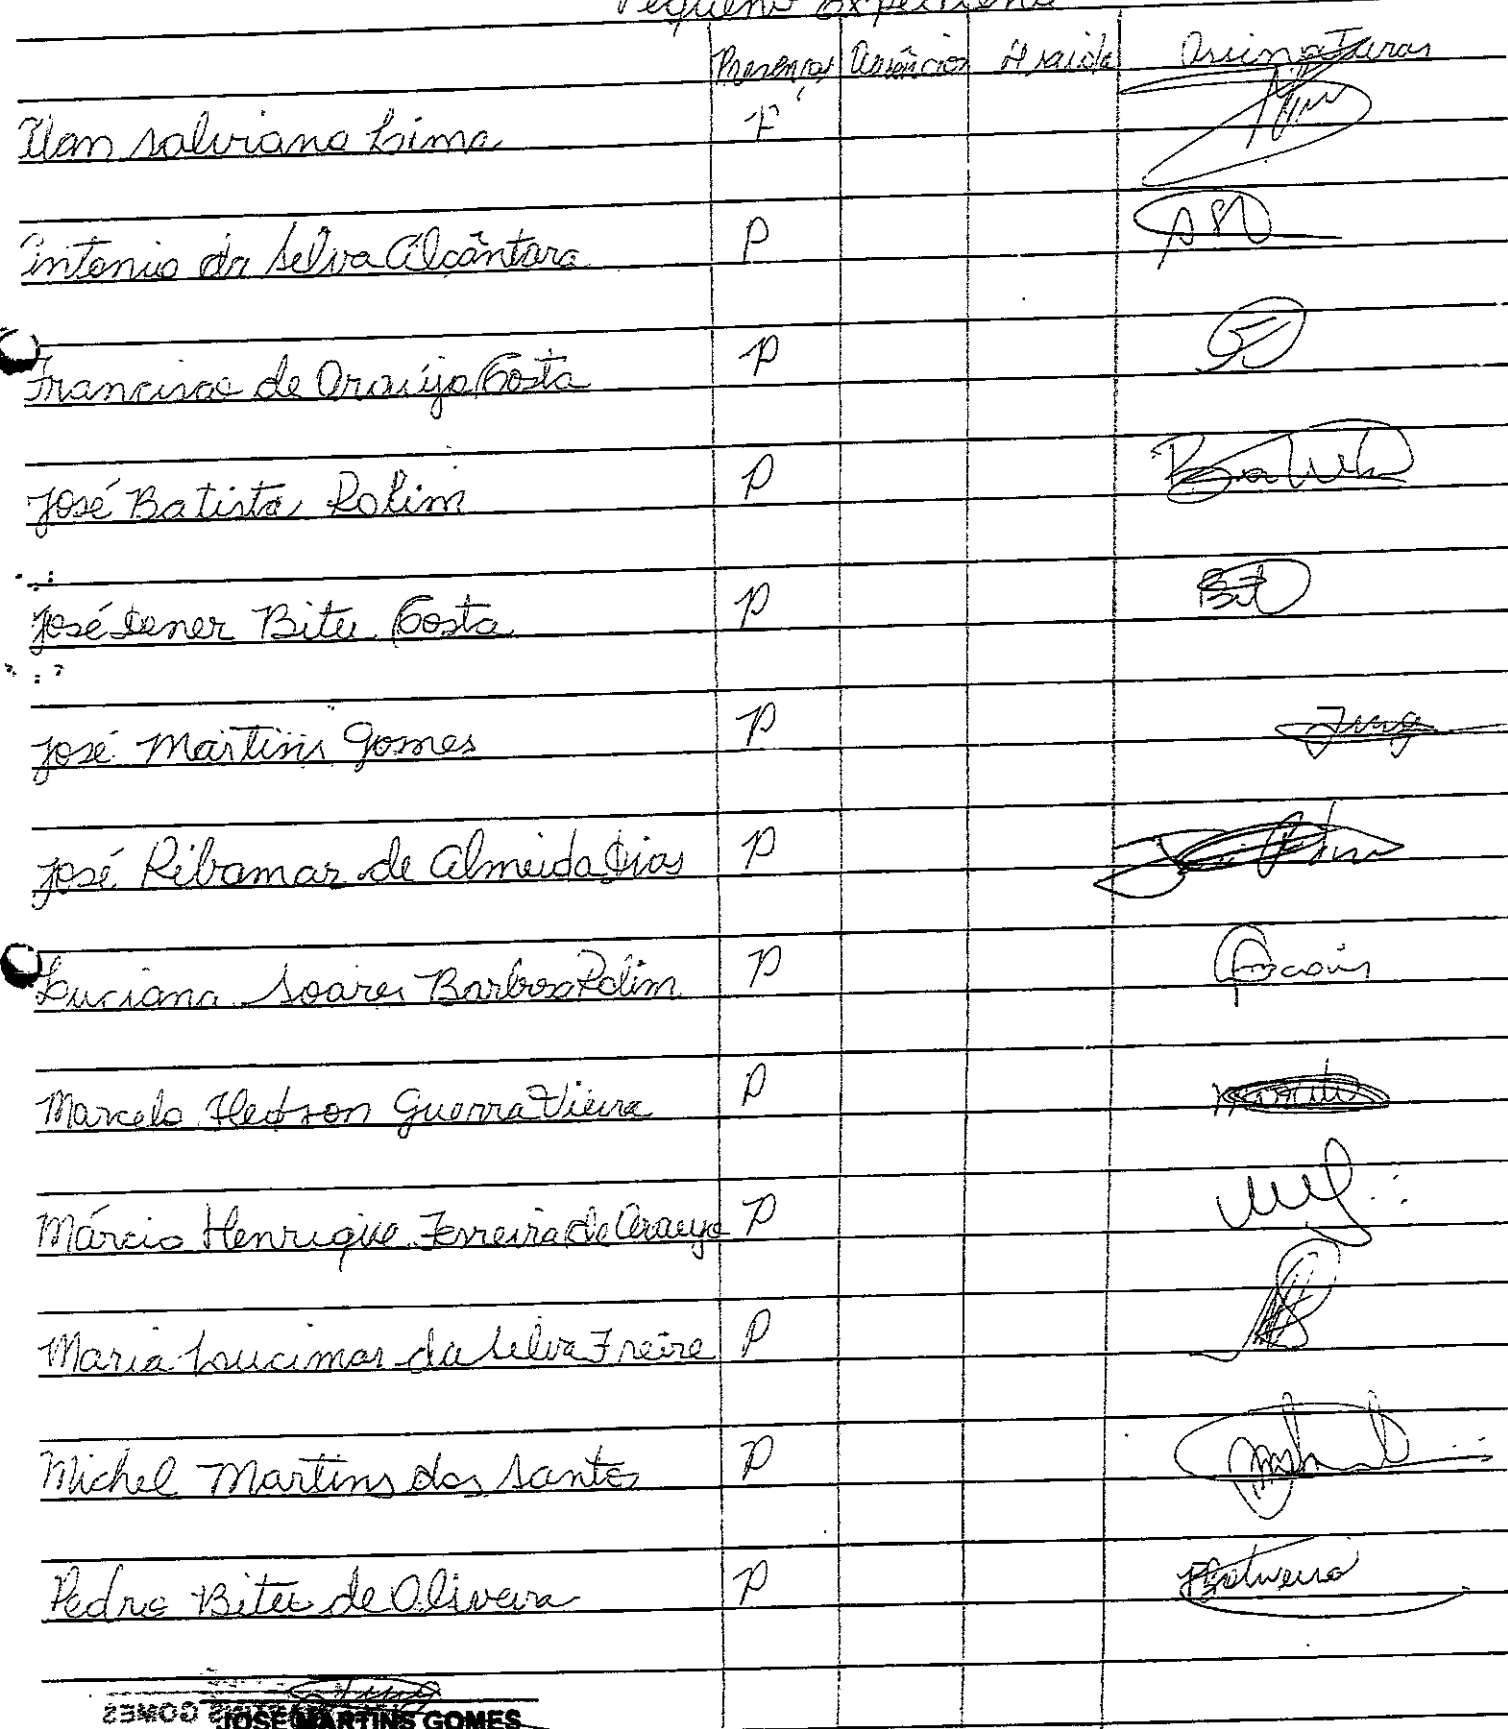 Pequeno Expediente
Presenças Ausências A saida Assinaturas
Ilan Salviano Lima F
Antonio da Silva Alcântara P
Francisco de Araújo Costa P
José Batista Rolim P
José Iener Bitu Costa P
José Martins Gomes P
José Ribamar de Almeida Dias P
Luciana Soares Barbosa Rolim P
Marcelo Hedson Guerra Vieira P
Márcio Henrique Ferreira de Araujo P
Maria Lucimar da Silva Freire P
Michel Martins dos Santos P
Pedro Bitu de Oliveira P
JOSÉ MARTINS GOMES